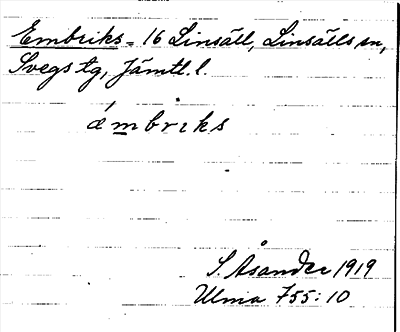 Embriks = 16 Linsäll, Linsälls sn,
Svegs tg, Jämtl. l.
ámbriks
S. Åsander 1919
Ulma 755:10